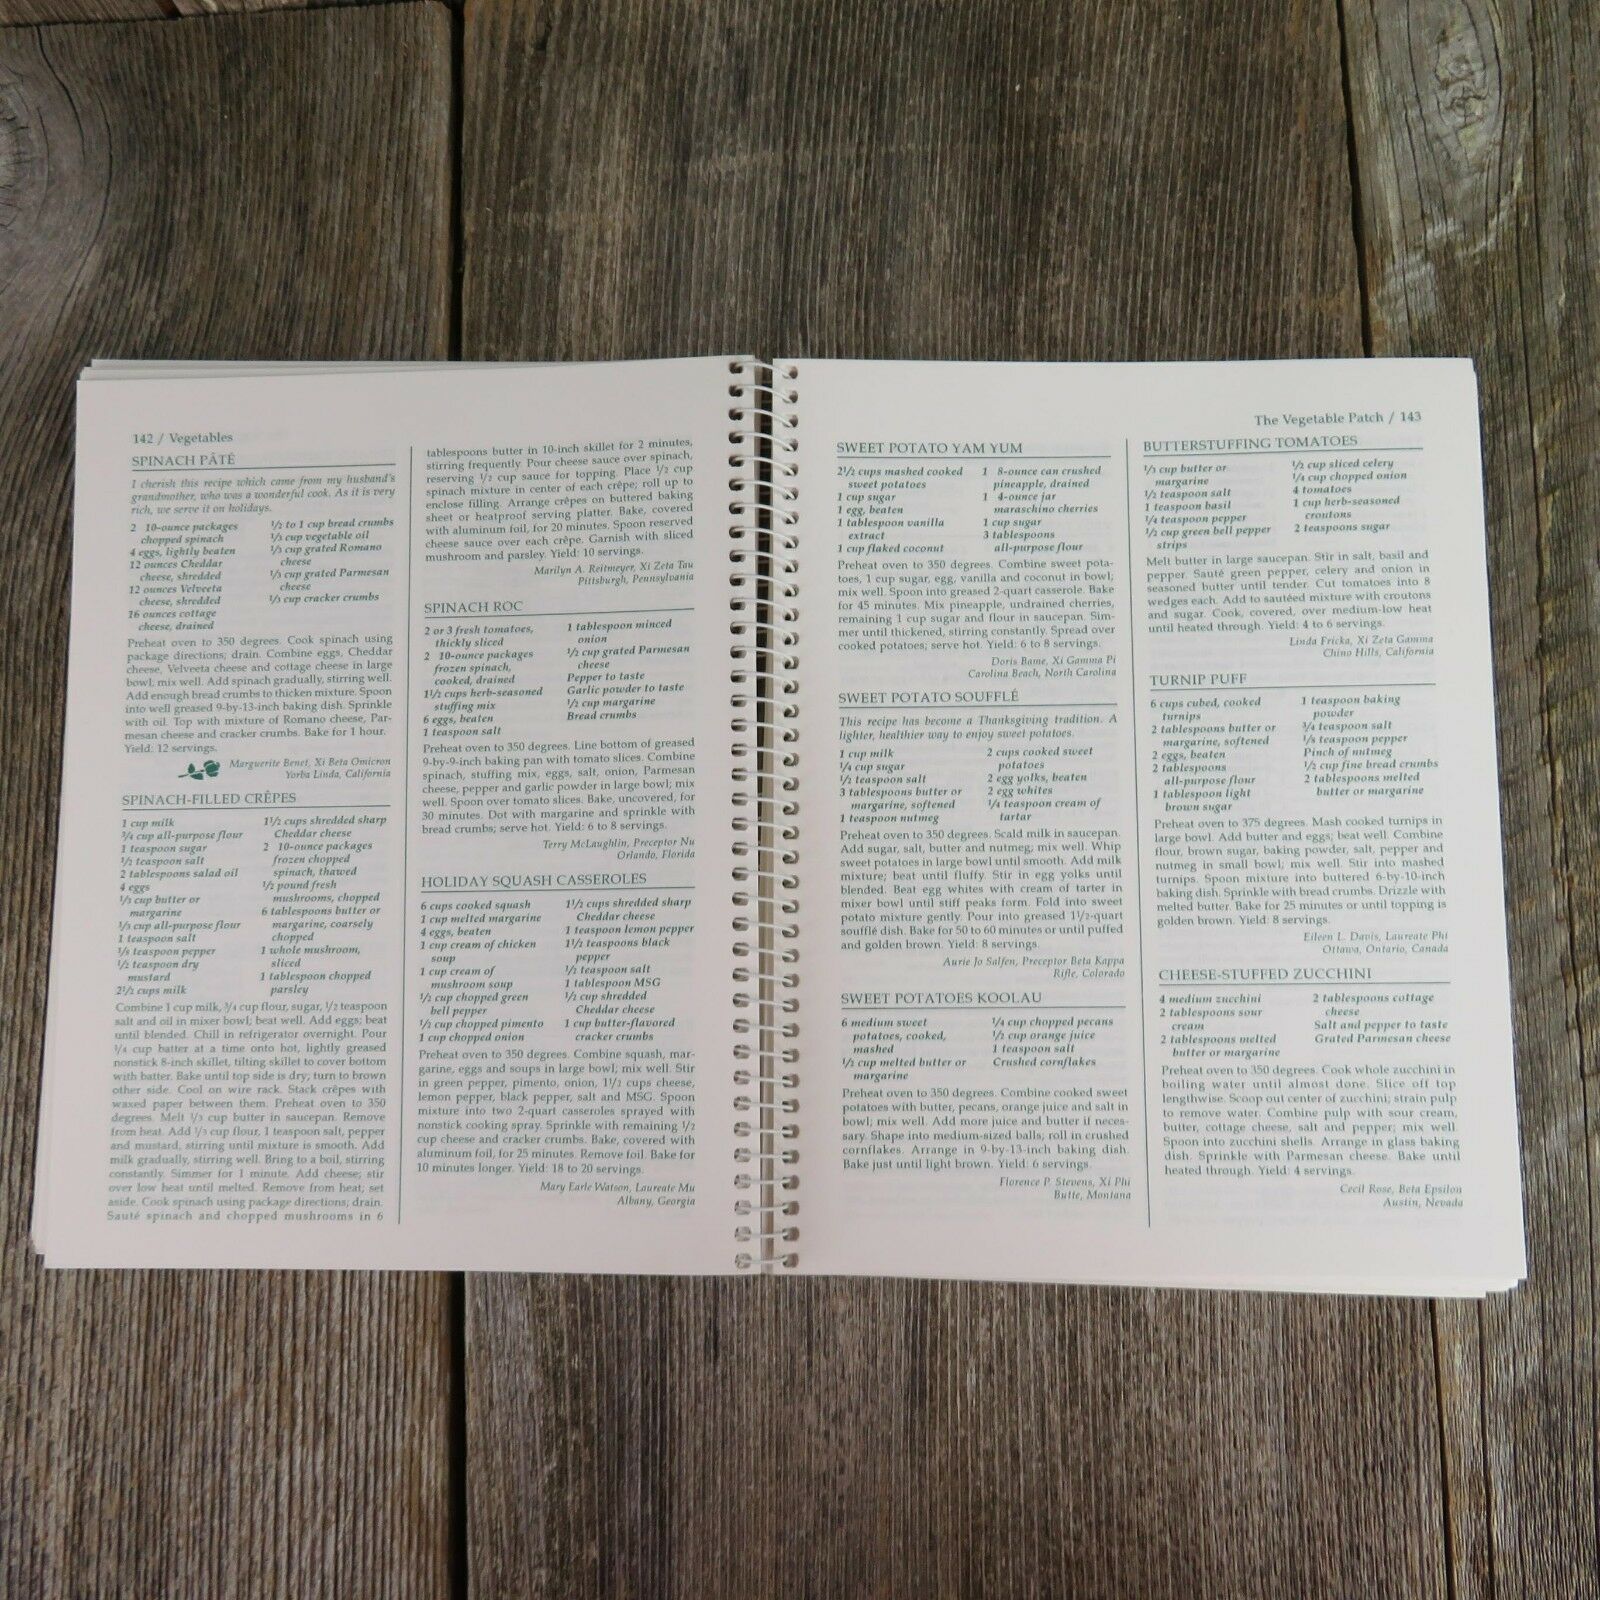 142 / Vegetables
SPINACH PÂTÉ
I cherish this recipe which came from my husband's
grandmother, who was a wonderful cook. As it is very
rich, we serve it on holidays.
2 10-ounce packages
chopped spinach
4 eggs, lightly beaten
12 ounces Cheddar
cheese, shredded
12 ounces Velveeta
cheese, shredded
16 ounces cottage
cheese, drained
1/2 to 1 cup bread crumbs
1/3 cup vegetable oil
1/3 cup grated Romano
cheese
1/3 cup grated Parmesan
cheese
1/3 cup cracker crumbs
Preheat oven to 350 degrees. Cook spinach using
package directions; drain. Combine eggs, Cheddar
cheese, Velveeta cheese and cottage cheese in large
bowl; mix well. Add spinach gradually, stirring well.
Add enough bread crumbs to thicken mixture. Spoon
into well greased 9-by-13-inch baking dish. Sprinkle
with oil. Top with mixture of Romano cheese, Par-
mesan cheese and cracker crumbs. Bake for 1 hour.
Yield: 12 servings.
Marguerite Benet, Xi Beta Omicron
Yorba Linda, California
SPINACH-FILLED CRÊPES
1 cup milk
3/4 cup all-purpose flour
1 teaspoon sugar
1/2 teaspoon salt
2 tablespoons salad oil
4 eggs
1/3 cup butter or
margarine
1/3 cup all-purpose flour
1 teaspoon salt
1/8 teaspoon pepper
1/2 teaspoon dry
mustard
2 1/2 cups milk
1 1/2 cups shredded sharp
Cheddar cheese
2 10-ounce packages
frozen chopped
spinach, thawed
1/2 pound fresh
mushrooms, chopped
6 tablespoons butter or
margarine, coarsely
chopped
1 whole mushroom,
sliced
1 tablespoon chopped
parsley
Combine 1 cup milk, 3/4 cup flour, sugar, 1/2 teaspoon
salt and oil in mixer bowl; beat well. Add eggs; beat
until blended. Chill in refrigerator overnight. Pour
1/4 cup batter at a time onto hot, lightly greased
nonstick 8-inch skillet, tilting skillet to cover bottom
with batter. Bake until top side is dry; turn to brown
other side. Cool on wire rack. Stack crêpes with
waxed paper between them. Preheat oven to 350
degrees. Melt 1/3 cup butter in saucepan. Remove
from heat. Add 1/3 cup flour, 1 teaspoon salt, pepper
and mustard, stirring until mixture is smooth. Add
milk gradually, stirring well. Bring to a boil, stirring
constantly. Simmer for 1 minute. Add cheese; stir
over low heat until melted. Remove from heat; set
aside. Cook spinach using package directions; drain.
Sauté spinach and chopped mushrooms in 6
tablespoons butter in 10-inch skillet for 2 minutes,
stirring frequently. Pour cheese sauce over spinach,
reserving 1/2 cup sauce for topping. Place 1/2 cup
spinach mixture in center of each crêpe; roll up to
enclose filling. Arrange crêpes on buttered baking
sheet or heatproof serving platter. Bake, covered
with aluminum foil, for 20 minutes. Spoon reserved
cheese sauce over each crêpe. Garnish with sliced
mushroom and parsley. Yield: 10 servings.
Marilyn A. Reitmeyer, Xi Zeta Tau
Pittsburgh, Pennsylvania
SPINACH ROC
2 or 3 fresh tomatoes,
thickly sliced
2 10-ounce packages
frozen spinach,
cooked, drained
1 1/2 cups herb-seasoned
stuffing mix
6 eggs, beaten
1 teaspoon salt
1 tablespoon minced
onion
1/2 cup grated Parmesan
cheese
Pepper to taste
Garlic powder to taste
1/2 cup margarine
Bread crumbs
Preheat oven to 350 degrees. Line bottom of greased
9-by-9-inch baking pan with tomato slices. Combine
spinach, stuffing mix, eggs, salt, onion, Parmesan
cheese, pepper and garlic powder in large bowl; mix
well. Spoon over tomato slices. Bake, uncovered, for
30 minutes. Dot with margarine and sprinkle with
bread crumbs; serve hot. Yield: 6 to 8 servings.
Terry McLaughlin, Preceptor Nu
Orlando, Florida
HOLIDAY SQUASH CASSEROLES
6 cups cooked squash
1 cup melted margarine
4 eggs, beaten
1 cup cream of chicken
soup
1 cup cream of
mushroom soup
1/2 cup chopped green
bell pepper
1/2 cup chopped pimento
1 cup chopped onion
1 1/2 cups shredded sharp
Cheddar cheese
1 teaspoon lemon pepper
1 1/2 teaspoons black
pepper
1/2 teaspoon salt
1 tablespoon MSG
1/2 cup shredded
Cheddar cheese
1 cup butter-flavored
cracker crumbs
Preheat oven to 350 degrees. Combine squash, mar-
garine, eggs and soups in large bowl; mix well. Stir
in green pepper, pimento, onion, 1 1/2 cups cheese,
lemon pepper, black pepper, salt and MSG. Spoon
mixture into two 2-quart casseroles sprayed with
nonstick cooking spray. Sprinkle with remaining 1/2
cup cheese and cracker crumbs. Bake, covered with
aluminum foil, for 25 minutes. Remove foil. Bake for
10 minutes longer. Yield: 18 to 20 servings.
Mary Earle Watson, Laureate Mu
Albany, Georgia
The Vegetable Patch / 143
SWEET POTATO YAM YUM
2 1/2 cups mashed cooked
sweet potatoes
1 cup sugar
1 egg, beaten
1 tablespoon vanilla
extract
1 cup flaked coconut
1 8-ounce can crushed
pineapple, drained
1 4-ounce jar
maraschino cherries
1 cup sugar
3 tablespoons
all-purpose flour
Preheat oven to 350 degrees. Combine sweet pota-
toes, 1 cup sugar, egg, vanilla and coconut in bowl;
mix well. Spoon into greased 2-quart casserole. Bake
for 45 minutes. Mix pineapple, undrained cherries,
remaining 1 cup sugar and flour in saucepan. Sim-
mer until thickened, stirring constantly. Spread over
cooked potatoes; serve hot. Yield: 6 to 8 servings.
Doris Bame, Xi Gamma Pi
Carolina Beach, North Carolina
SWEET POTATO SOUFFLÉ
This recipe has become a Thanksgiving tradition. A
lighter, healthier way to enjoy sweet potatoes.
1 cup milk
1/4 cup sugar
1/2 teaspoon salt
3 tablespoons butter or
margarine, softened
1 teaspoon nutmeg
2 cups cooked sweet
potatoes
2 egg yolks, beaten
2 egg whites
1/4 teaspoon cream of
tartar
Preheat oven to 350 degrees. Scald milk in saucepan.
Add sugar, salt, butter and nutmeg; mix well. Whip
sweet potatoes in large bowl until smooth. Add milk
mixture; beat until fluffy. Stir in egg yolks until
blended. Beat egg whites with cream of tartar in
mixer bowl until stiff peaks form. Fold into sweet
potato mixture gently. Pour into greased 1 1/2-quart
soufflé dish. Bake for 50 to 60 minutes or until puffed
and golden brown. Yield: 8 servings.
Aurie Jo Salfen, Preceptor Beta Kappa
Rifle, Colorado
SWEET POTATOES KOOLAU
6 medium sweet
potatoes, cooked,
mashed
1/2 cup melted butter or
margarine
1/4 cup chopped pecans
1/2 cup orange juice
1 teaspoon salt
Crushed cornflakes
Preheat oven to 350 degrees. Combine cooked sweet
potatoes with butter, pecans, orange juice and salt in
bowl; mix well. Add more juice and butter if neces-
sary. Shape into medium-sized balls; roll in crushed
cornflakes. Arrange in 9-by-13-inch baking dish.
Bake just until light brown. Yield: 6 servings.
Florence P. Stevens, Xi Phi
Butte, Montana
BUTTERSTUFFING TOMATOES
1/3 cup butter or
margarine
1/2 teaspoon salt
1 teaspoon basil
1/4 teaspoon pepper
1/2 cup green bell pepper
strips
1/2 cup sliced celery
1/4 cup chopped onion
4 tomatoes
1 cup herb-seasoned
croutons
2 teaspoons sugar
Melt butter in large saucepan. Stir in salt, basil and
pepper. Sauté green pepper, celery and onion in
seasoned butter until tender. Cut tomatoes into 8
wedges each. Add to sautéed mixture with croutons
and sugar. Cook, covered, over medium-low heat
until heated through. Yield: 4 to 6 servings.
Linda Fricka, Xi Zeta Gamma
Chino Hills, California
TURNIP PUFF
6 cups cubed, cooked
turnips
2 tablespoons butter or
margarine, softened
2 eggs, beaten
2 tablespoons
all-purpose flour
1 tablespoon light
brown sugar
1 teaspoon baking
powder
3/4 teaspoon salt
1/8 teaspoon pepper
Pinch of nutmeg
1/2 cup fine bread crumbs
2 tablespoons melted
butter or margarine
Preheat oven to 375 degrees. Mash cooked turnips in
large bowl. Add butter and eggs; beat well. Combine
flour, brown sugar, baking powder, salt, pepper and
nutmeg in small bowl; mix well. Stir into mashed
turnips. Spoon mixture into buttered 6-by-10-inch
baking dish. Sprinkle with bread crumbs. Drizzle with
melted butter. Bake for 25 minutes or until topping is
golden brown. Yield: 8 servings.
Eileen L. Davis, Laureate Phi
Ottawa, Ontario, Canada
CHEESE-STUFFED ZUCCHINI
4 medium zucchini
2 tablespoons sour
cream
2 tablespoons melted
butter or margarine
2 tablespoons cottage
cheese
Salt and pepper to taste
Grated Parmesan cheese
Preheat oven to 350 degrees. Cook whole zucchini in
boiling water until almost done. Slice off top
lengthwise. Scoop out center of zucchini; strain pulp
to remove water. Combine pulp with sour cream,
butter, cottage cheese, salt and pepper; mix well.
Spoon into zucchini shells. Arrange in glass baking
dish. Sprinkle with Parmesan cheese. Bake until
heated through. Yield: 4 servings.
Cecil Rose, Beta Epsilon
Austin, Nevada